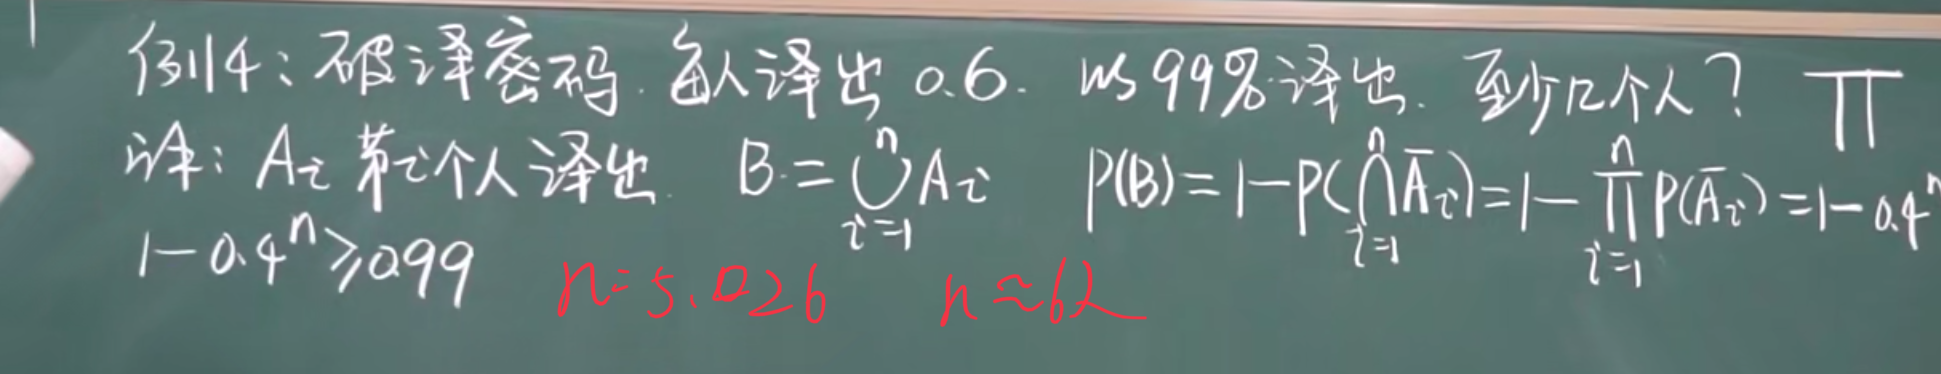 例4：破译密码．每人译出 0.6．以99%译出．至少几个人？ ∏
译：Aᵢ 第i个人译出 B = ⋃ᵢ₌₁ⁿ Aᵢ P(B) = 1-P(⋂ᵢ₌₁ⁿ Āᵢ) = 1-∏ᵢ₌₁ⁿ P(Āᵢ) = 1-0.4ⁿ
1-0.4ⁿ ≥ 0.99 n=5.026 n≈6人